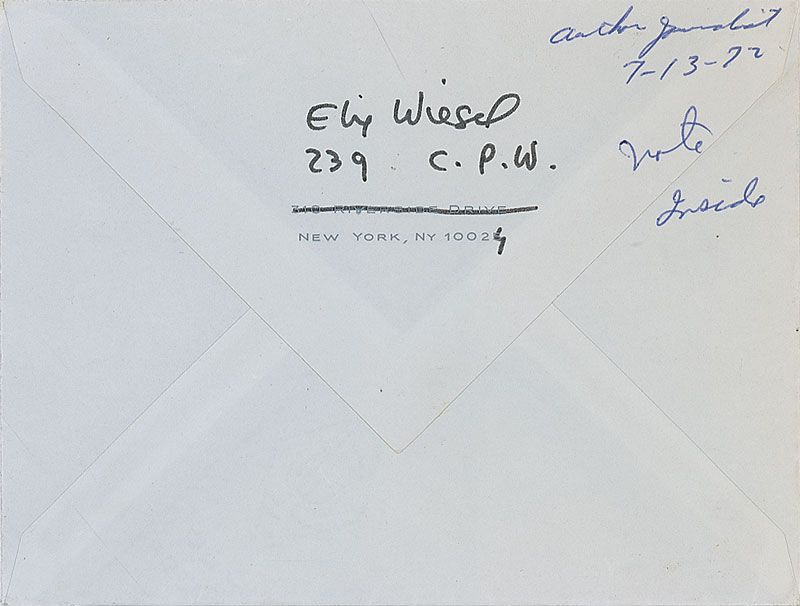 author journalist
7-13-72
Elie Wiesel
239 C.P.W.
310 RIVERSIDE DRIVE
note
NEW YORK, NY 10024
Inside